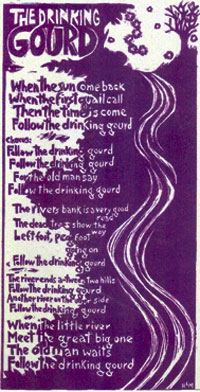 THE DRINKING
GOURD
When the sun come back
When the first quail call
Then the time is come
Follow the drinking gourd
Chorus:
Follow the drinking gourd
Follow the drinking gourd
For the old man say
Follow the drinking gourd
The rivers bank is a very good
road
The dead trees show the
way
Left foot, peg foot
going on
Follow the drinking gourd
The river ends a-tween two hills
Follow the drinking gourd
Another river on the other side
Follow the drinking gourd
When the little river
Meet the great big one
The old man waits
Follow the drinking gourd